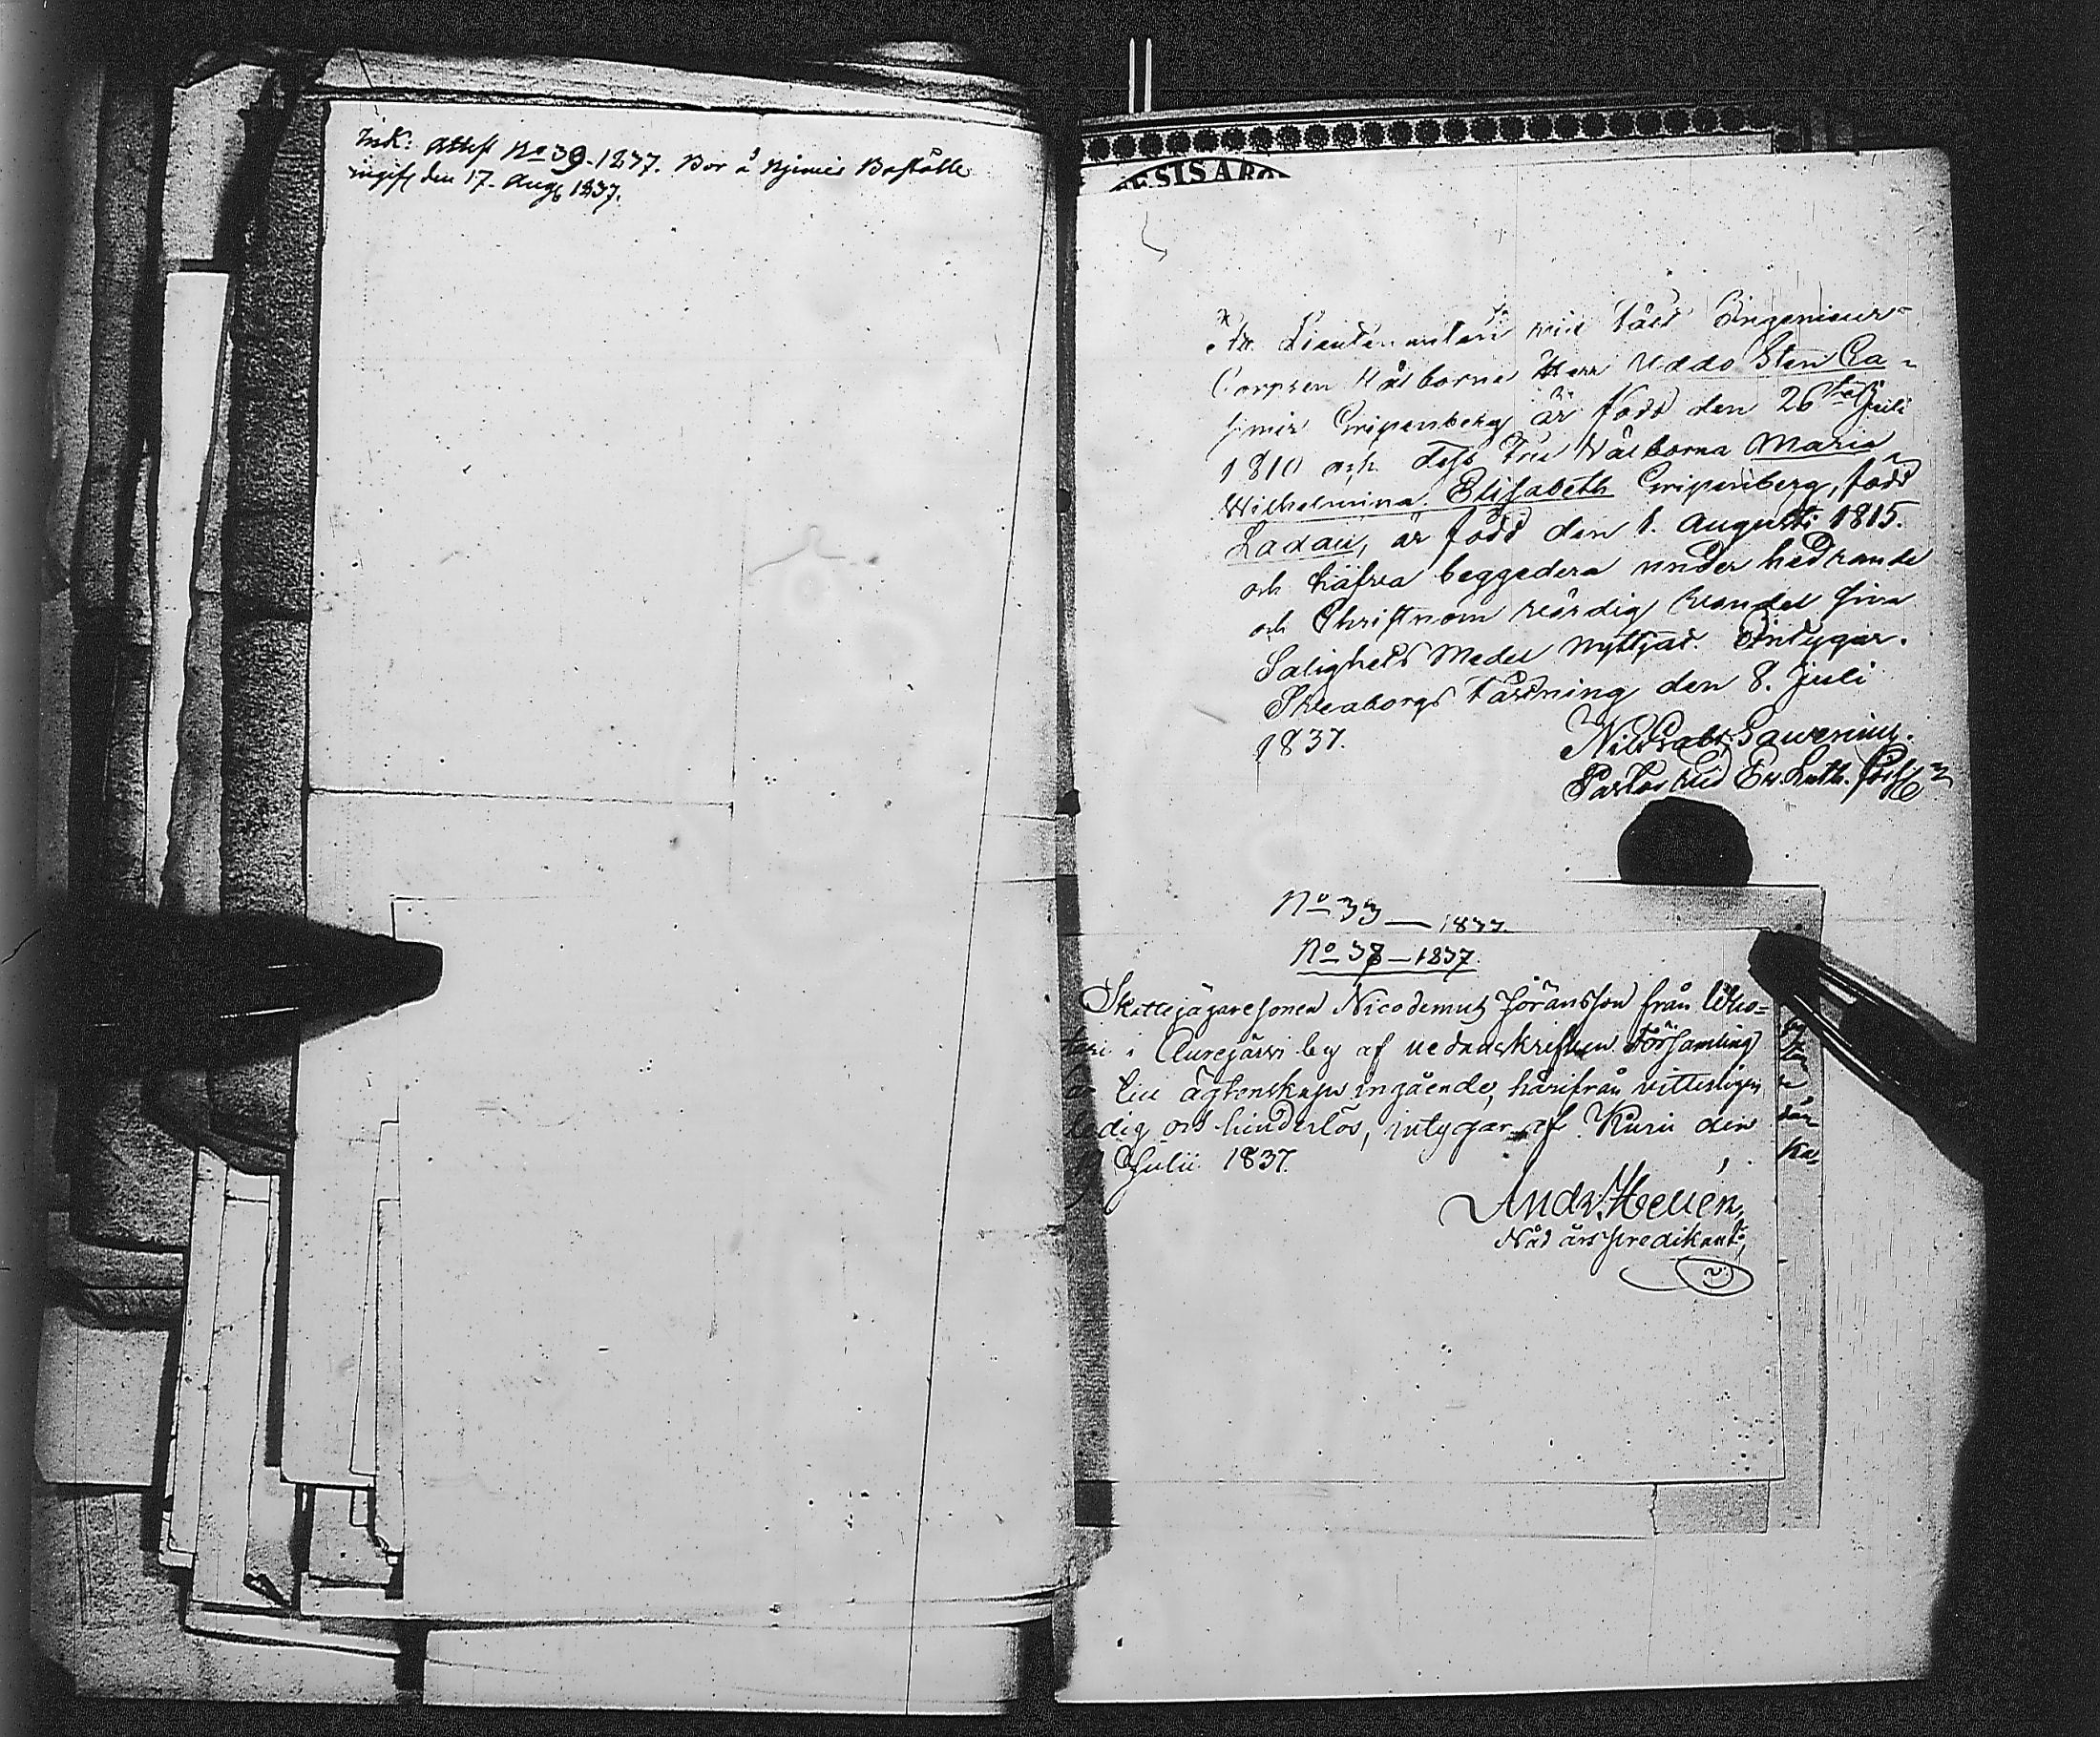 Ink: Attest No 39. 1837. Bor å Njemis Boställe
ingift den 17. Aug 1837.
At Lieutenanten vid Ingenieur-
Corpsen Välborne Herr Uddo Sten Ca-
simir Gripenberg är född den 26 Juli
1810 och dess Fru Välborna Maria
Wilhelmina Elisabeth Gripenberg, född
Ladau, är född den 1. Augusti 1815.
och hafva beggedera under hedrande
och Christnom värdig vandel sina
Salighets Medel nyttjat. Intygar.
Sveaborgs Fästning den 8. Juli
1837.
Pastor vid Ev. Luth. Förs
No 33 — 1837.
No 38 — 1837.
Skattejägaresonen Nicodemus Göransson från
i Aurejärvi by af nedanskrifven Församling
till ägtenskaps ingående, härifrån vitterligen
ledig och hinderlös, intygar af Kuru den
Julii 1837.
Andr. Helién,
Nådårspredikant